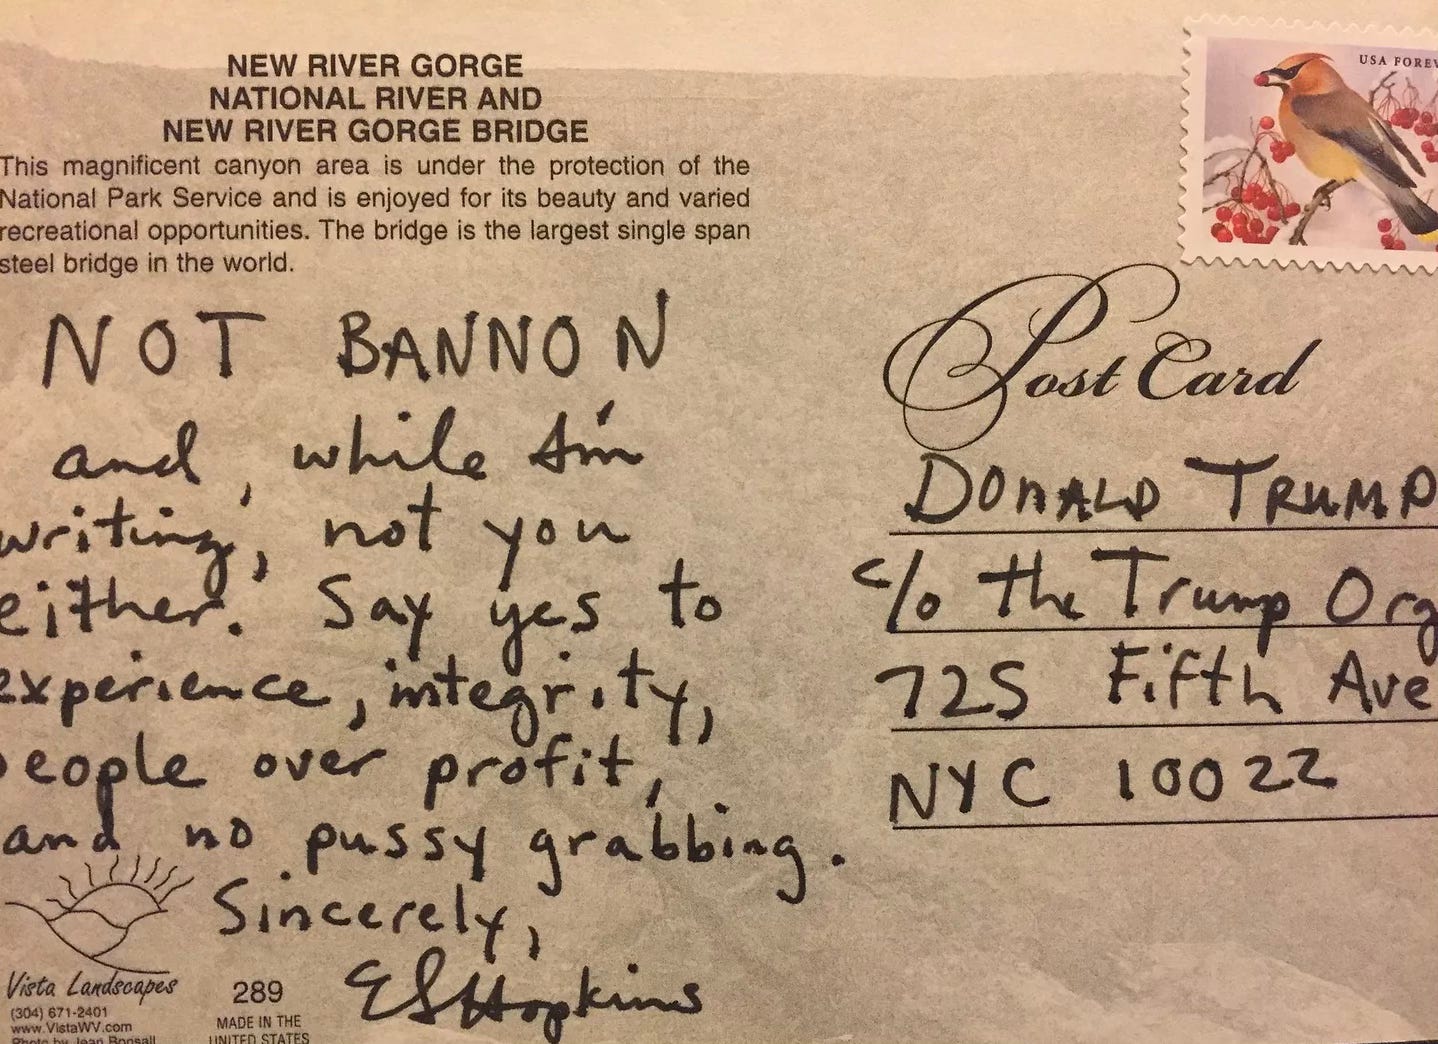 NEW RIVER GORGE
NATIONAL RIVER AND
NEW RIVER GORGE BRIDGE
This magnificent canyon area is under the protection of the
National Park Service and is enjoyed for its beauty and varied
recreational opportunities. The bridge is the largest single span
steel bridge in the world.
NOT BANNON
and, while I'm
writing, not you
either. Say yes to
experience, integrity,
people over profit,
and no pussy grabbing.
Sincerely,
ES Hopkins
Vista Landscapes
(304) 671-2401
www.VistaWV.com
Photo by Jean Bonsall
289
MADE IN THE
UNITED STATES
USA FOREV
Post Card
DONALD TRUMP
c/o the Trump Org
725 Fifth Ave
NYC 10022